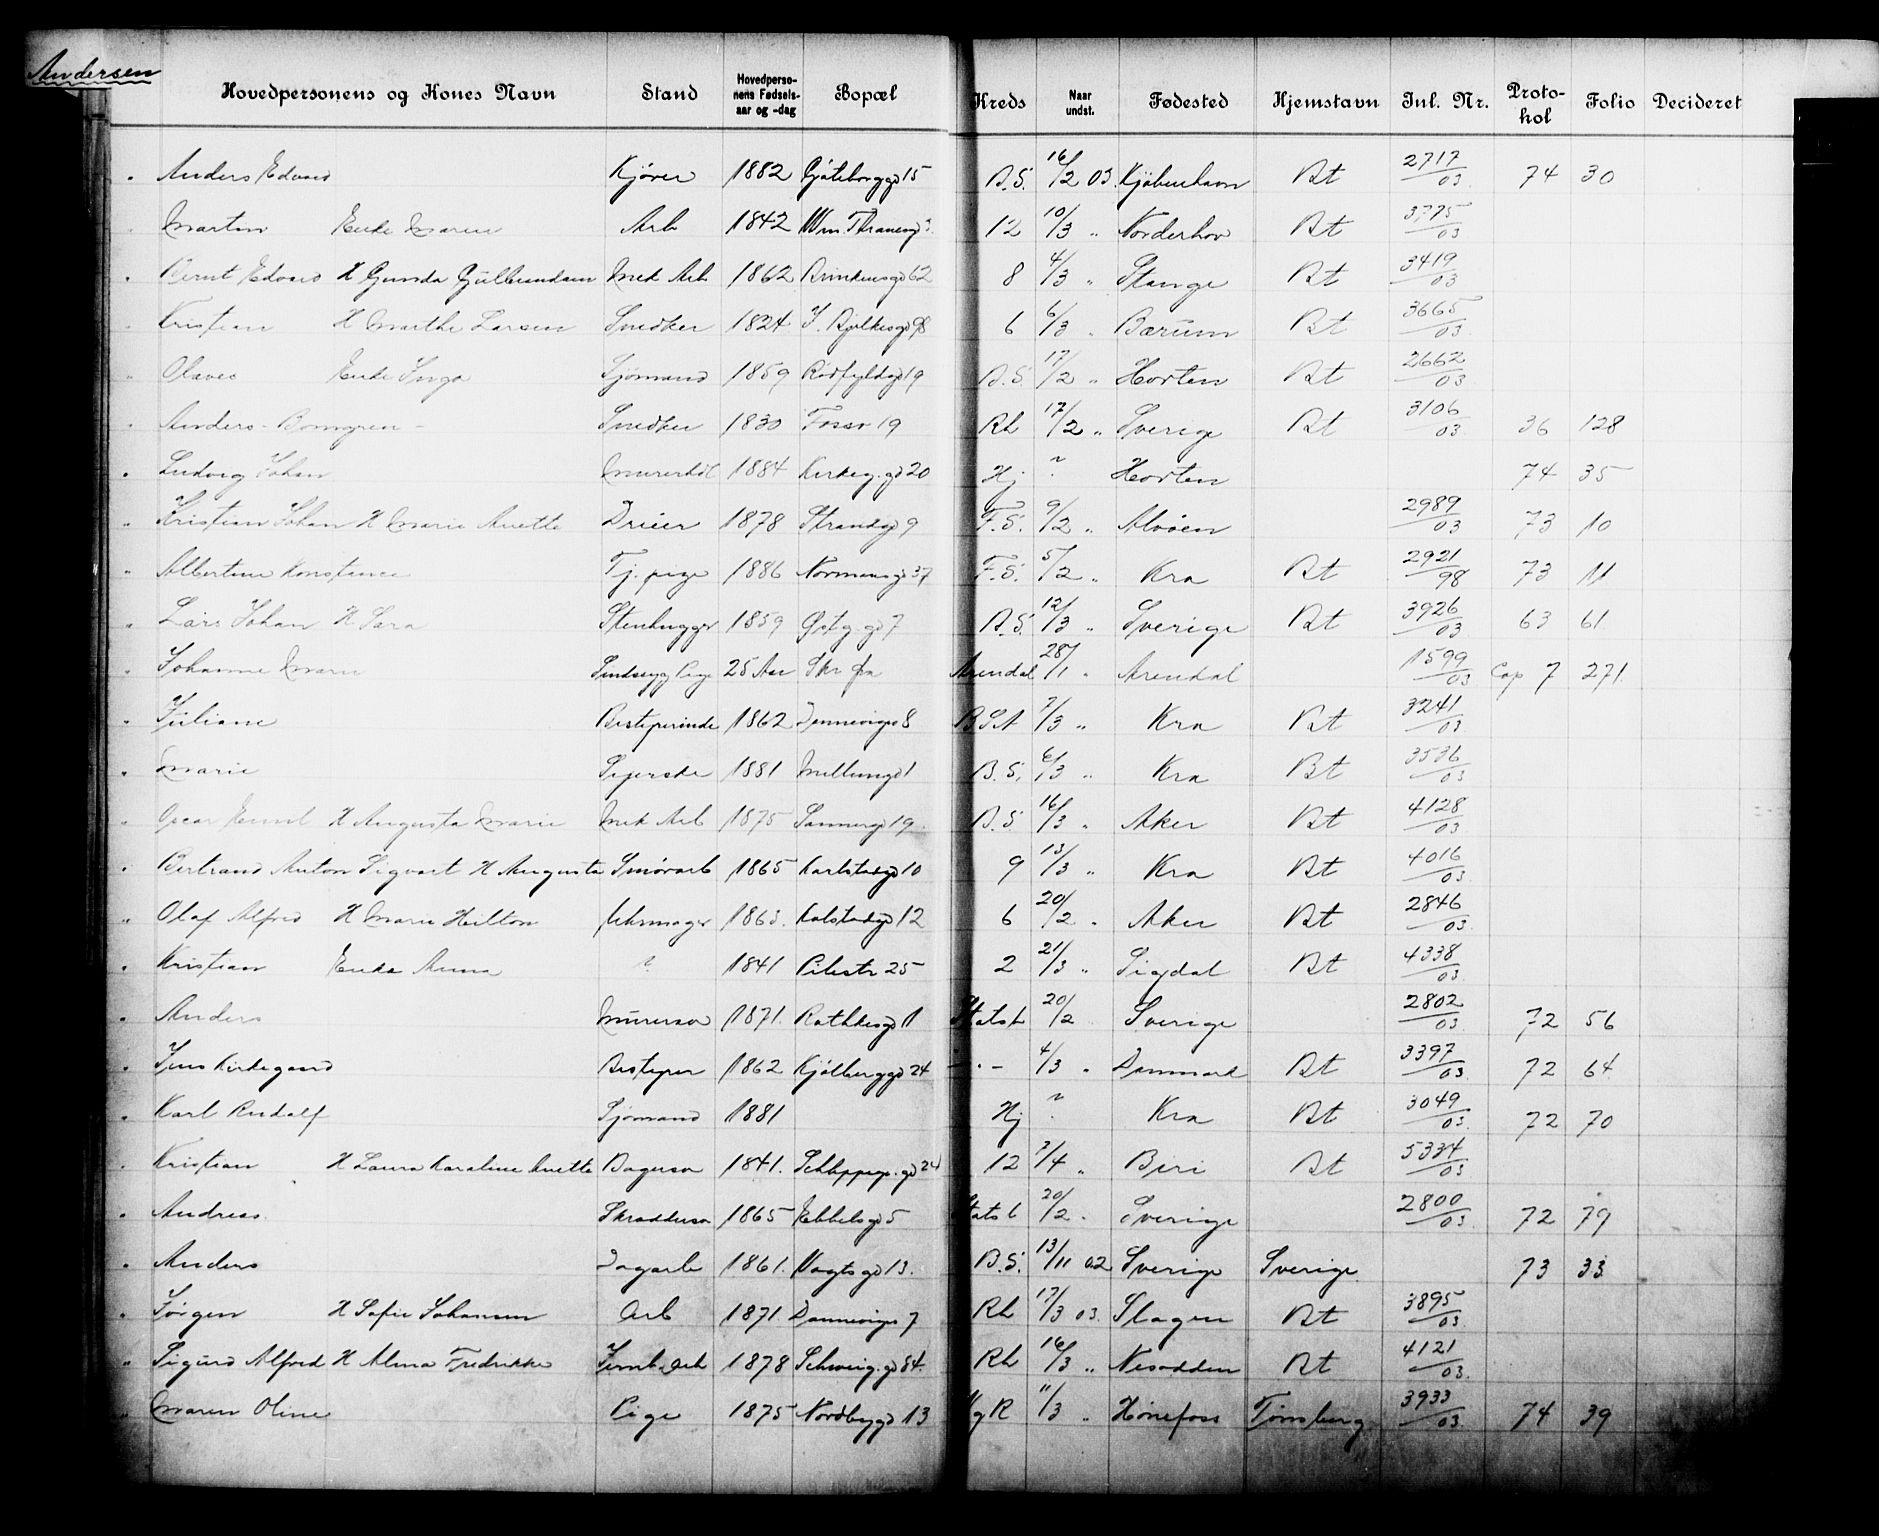 Andersen
Hovedpersonens og Kones Navn Stand Hovedpersonens Fødselsaar og -dag Bopæl Kreds Naar undst. Fødested Hjemstavn Inl. Nr. Protokol Folio Decideret
" Anders Edvard Kjører 1882 Gøteborggd 15 B.S. 16/2 03. Kjøbenhavn Bt 2717/03. 74 30
" Martin Enke Maren Arb 1842 Wm. Thranesgd 12 10/3 " Norderhov Bt 3775/03
" Bernt Edvard H Gunda Gulbrandsen Mek Arb 1862 Brinkensgd 62 8 4/3 " Stange Bt 3419/03
" Kristian H Marthe Larsen Snedker 1824 I. Bjelkesgd 98 6 6/3 " Bærum Bt 3665/03
" Olaves Enke Inga Sjømand 1859 Rødfyldgd 19 B.S. 17/2 " Horten Bt 2662/03
" Anders - Bomgren - Snedker 1830 Fossv 19 Rh 17/2 " Sverige Bt 3106/03. 36 128
" Ludvig Johan 1884 Kirkeg.gd 20 Hj ? Horten 74 35
" Kristian Johan H Marie Anette Dreier 1878 Strandgd 9 F.S. 9/2 " Alvøen 2989/03 73 10
" Albertine Konstance Tj. pige 1886 Normansgd 37 F.S. 5/2 " Kra Bt 2921/98 73 11
" Lars Johan H Sara Stenhugger 1859 Østg.gd 7 B.S. 12/3 " Sverige Bt 3926/03 63 61
" Johanne Marie Sindssyg Pige 25 Aar Skr fra Arendal 28/1 " Arendal 1599/03 Cop 7 271.
" Juliane Bestyrerinde 1862 Dannevigs 8 B.S.A 7/3 " Kra Bt 3241/03
" Marie Syerske 1881 B.S. 6/3 " Kra Bt 3536/03
" Oscar Emil H Augusta Marie Mek Arb 1875 Sannergd 19. B.S. 16/3 " Aker Bt 4128/03
" Bertrand Anton Sigvart H Augusta Smørarb 1865 Karlstadgd 10 9 13/3 " Kra Bt 4016/03
" Olaf Alfred H Marie Hilton Uhrmager 1863. Kalstadgd 12 6 20/2 " Aker Bt 2846/03.
" Kristian Enke Anna ? 1841 Pilestr 25 2 21/3 " Sigdal Bt 4338/03.
" Anders Murersv 1871. Rathkesgd 1 Statsb 20/2 Sverige 2802/03 72 56
" Jens Kirkegaard Bestyrer 1862 Kjølberggd 24 - " - 4/3 " Danmark Bt 3397/03. 72 64
" Karl Rudolf Sjømand 1881 Hj ? Kra Bt 3049/03. 72 70
" Kristian H Laura Karoline Anette Bagersv 1841. Schleppegr.gd 24 12 7/4 " Biri Bt 5334/03.
" Andreas Skræddersv 1865 Ebbelsgd 5 Statsb 20/2 " Sverige 2800/03. 72 79
" Anders Dagarb 1861. Vogtsgd 13. B.S. 13/11 02 Sverige Sverige 73 33
" Jørgen H Sofie Johansen Arb 1871 Dannevigs 7 Rh 17/3 03. Slagen Bt 3895/03.
" Sigurd Alfred H Alma Fredrikke Jernb. Arb 1878 Schweig.gd 84. Rh 16/3 " Nesodden Bt 4121/03.
" Maren Oline Pige 1875 Nordbygd 13 11/3 " Hønefoss Tønsberg 3933/03. 74 39